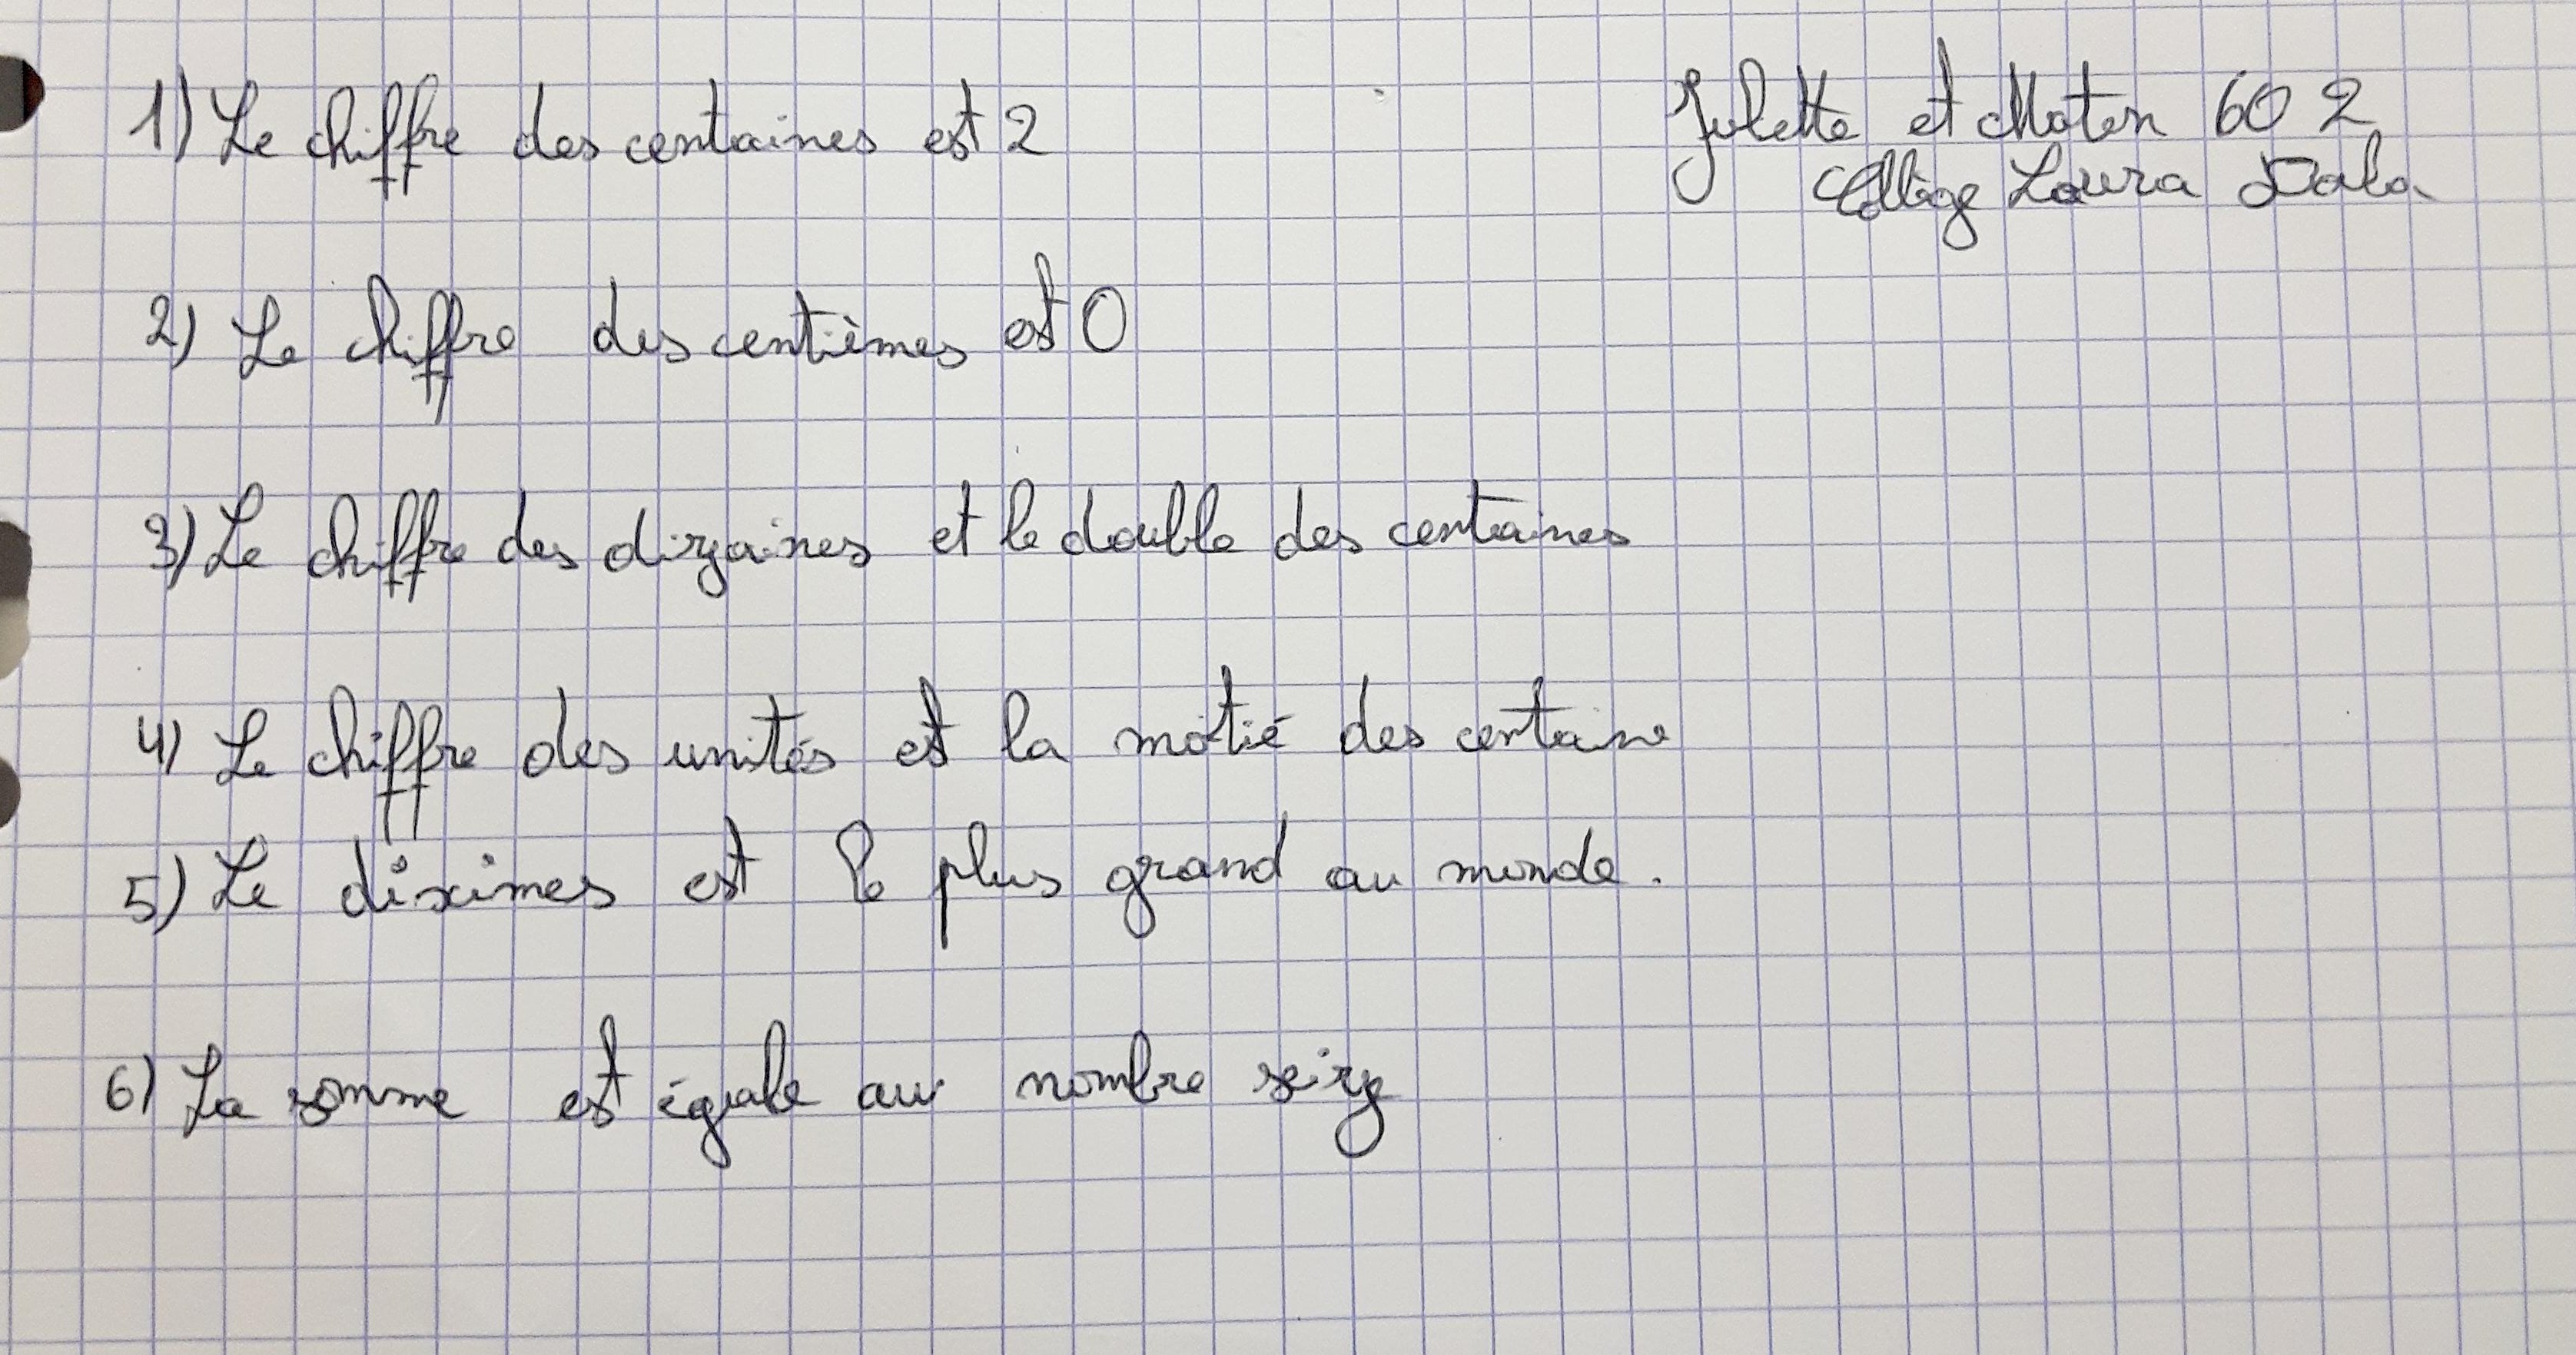 1) Le chiffre des centaines est 2
Juliette et Maten 602
Collège Laura Dala
2) Le chiffre des centièmes est 0
3) Le chiffre des dizaines et le double des centaines
4) Le chiffre des unités est la motié des centaine
5) Le dixímes est le plus grand au monde.
6) La somme est égale au nombre seize